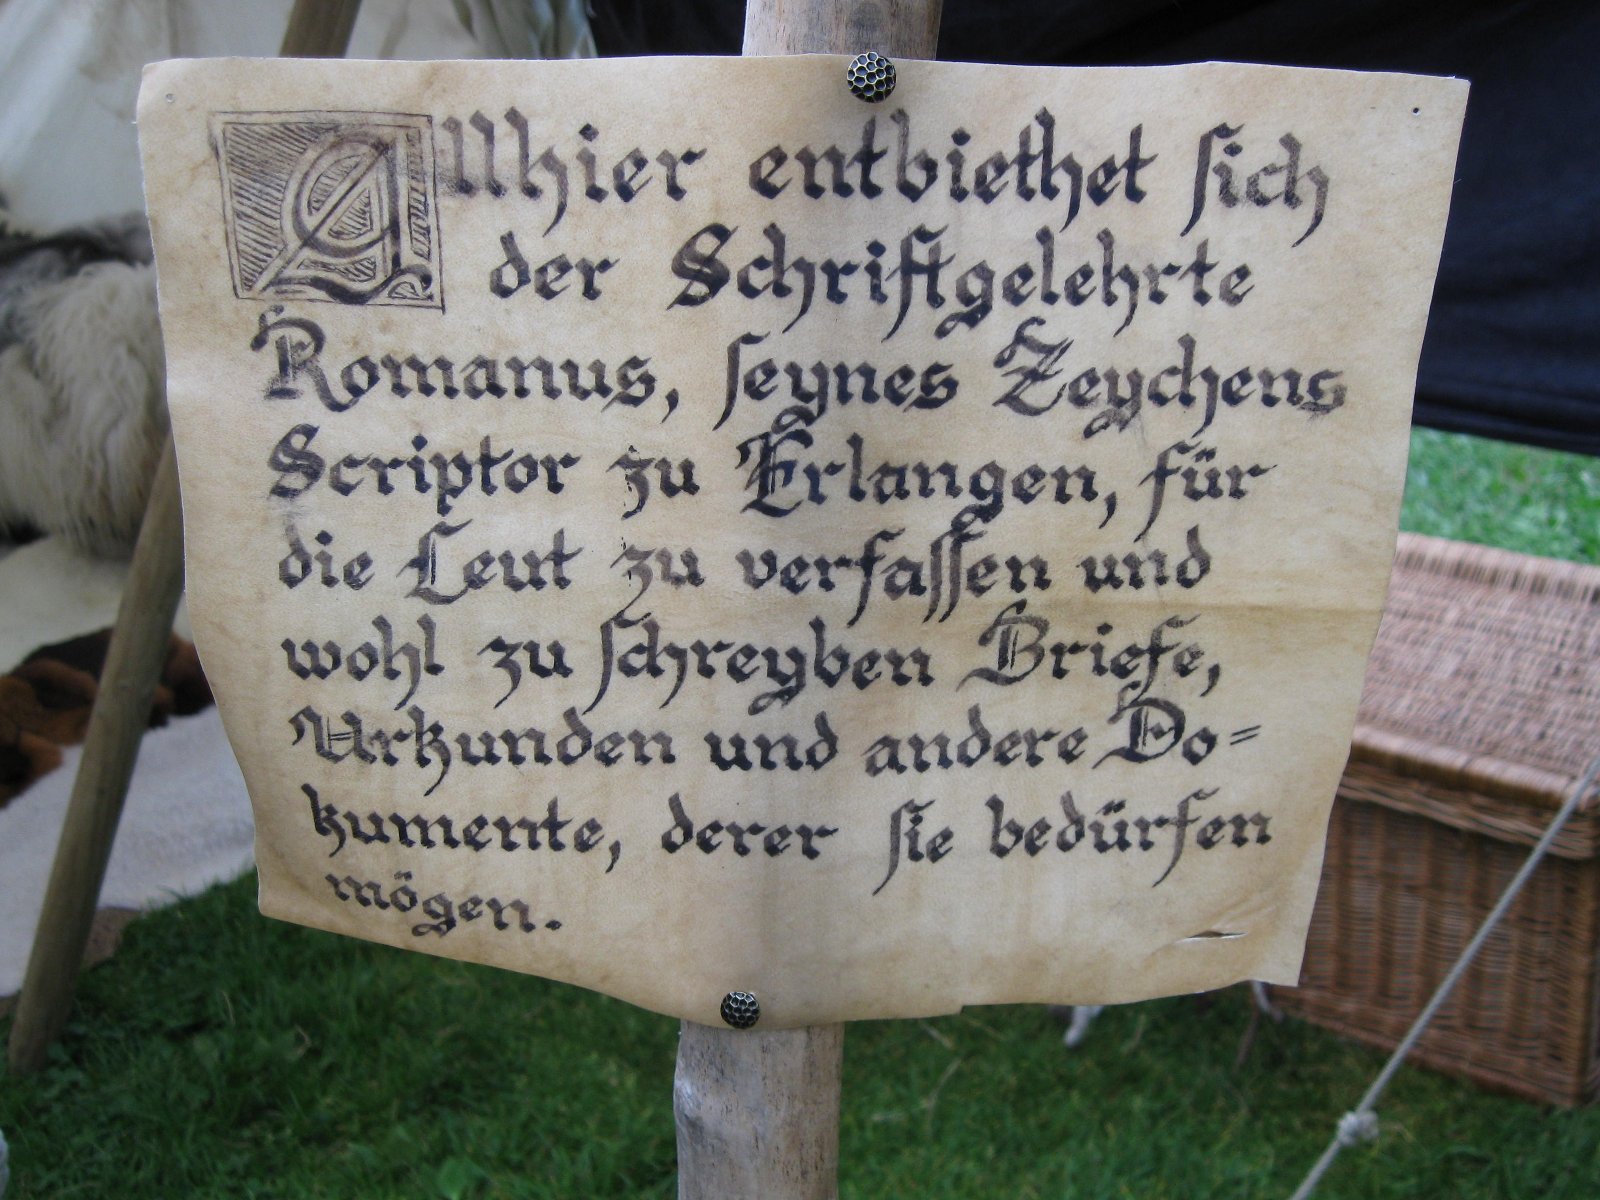 Allhier entbiethet sich
der Schriftgelehrte
Romanus, seynes Zeychens
Scriptor zu Erlangen, für
die Leut zu verfassen und
wohl zu schreyben Briefe,
Urkunden und andere Do=
kumente, derer sie bedürfen
mögen.